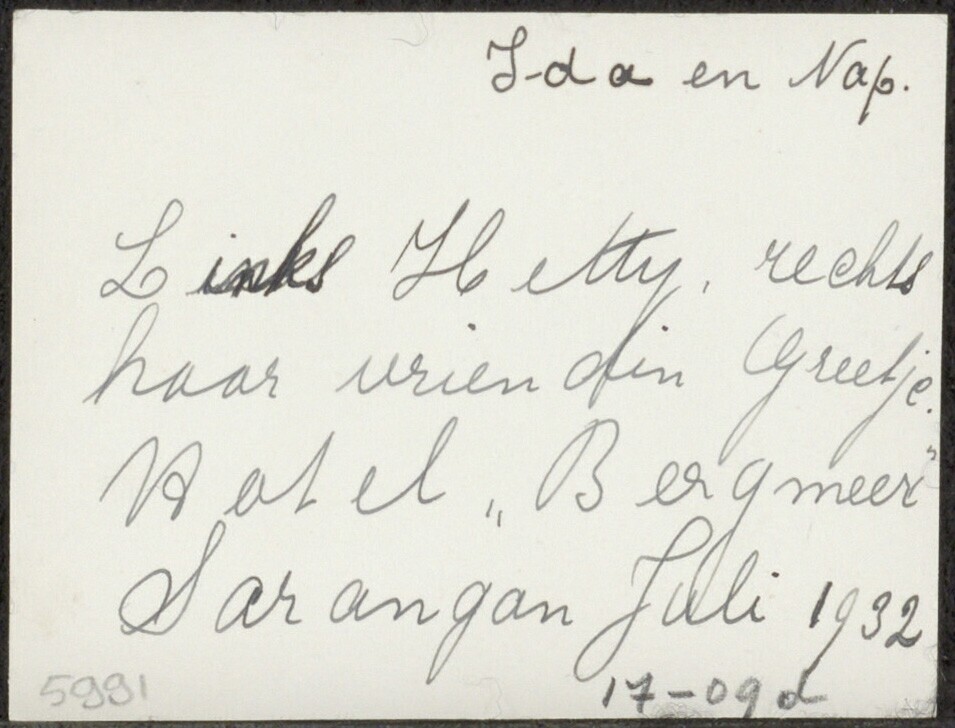 Ida en Nap.
Links Hetty, rechts
haar vriendin Greetje.
Hotel „Bergmeer”
Sarangan Juli 1932
5991 17-09d